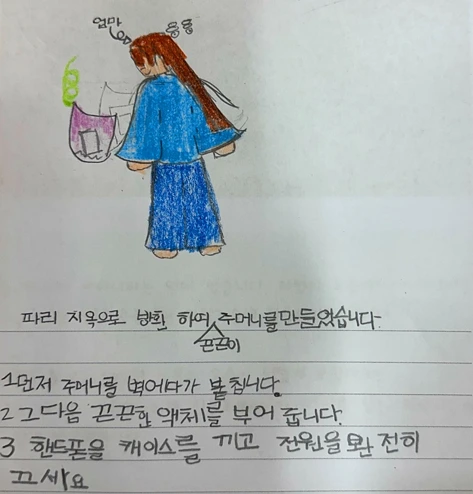 엄마
파리 지옥으로 하여 주머니를 만들었습니다.
끈끈이
1 먼저 주머니를 벽어다가 붙칩니다.
2 그다음 끈끈한 액체를 부어 줍니다.
3 핸드폰을 캐이스를 끼고 전원을 완 전히
끄세요